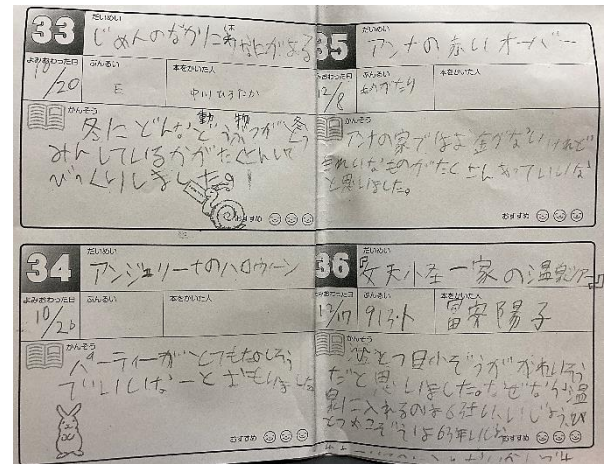 33
だいめい
じめんのなかになにがある
よみおわった日
10/20
ぶんるい
E
本をかいた人
中川ひろたか
かんそう
動物 冬
冬にどんなどうぶつがとう
みんしているかがたくさんいて
びっくりしました。!
おすすめ
34
だいめい
アンジェリーナのハロウィーン
よみおわった日
10/26
ぶんるい
本をかいた人
かんそう
パーティーがとてもたのしそう
でいいなーとおもいました
おすすめ
35
だいめい
アンナの赤いオーバー
よみおわった日
12/8
ぶんるい
ものがたり
本をかいた人
かんそう
アンナの家ではお金がないけれど
きれいなものがたくさんあっていいな
と思いました。
おすすめ
36
だいめい
一家の温泉ツアー』
よみおわった日
12/17
ぶんるい
913.ト
本をかいた人
富安陽子
かんそう
ひとつ目小ぞうがかわいそう
だと思いました。なぜなら温
泉に入れるのは
おすすめ